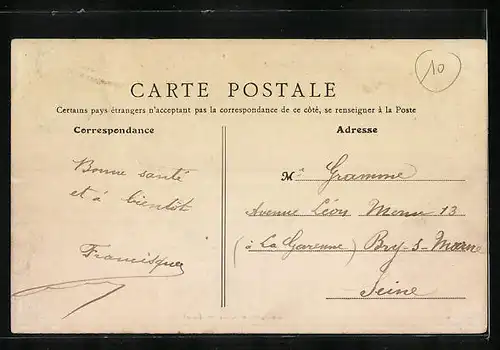 10
CARTE POSTALE
Certains pays étrangers n'acceptant pas la correspondance de ce côté, se renseigner à la Poste
Correspondance
Bonne santé
et à bientôt
Francisque
Adresse
Mr Gramme
Avenue Léon 13
(à La Garenne) Bry-s-Marne
Seine